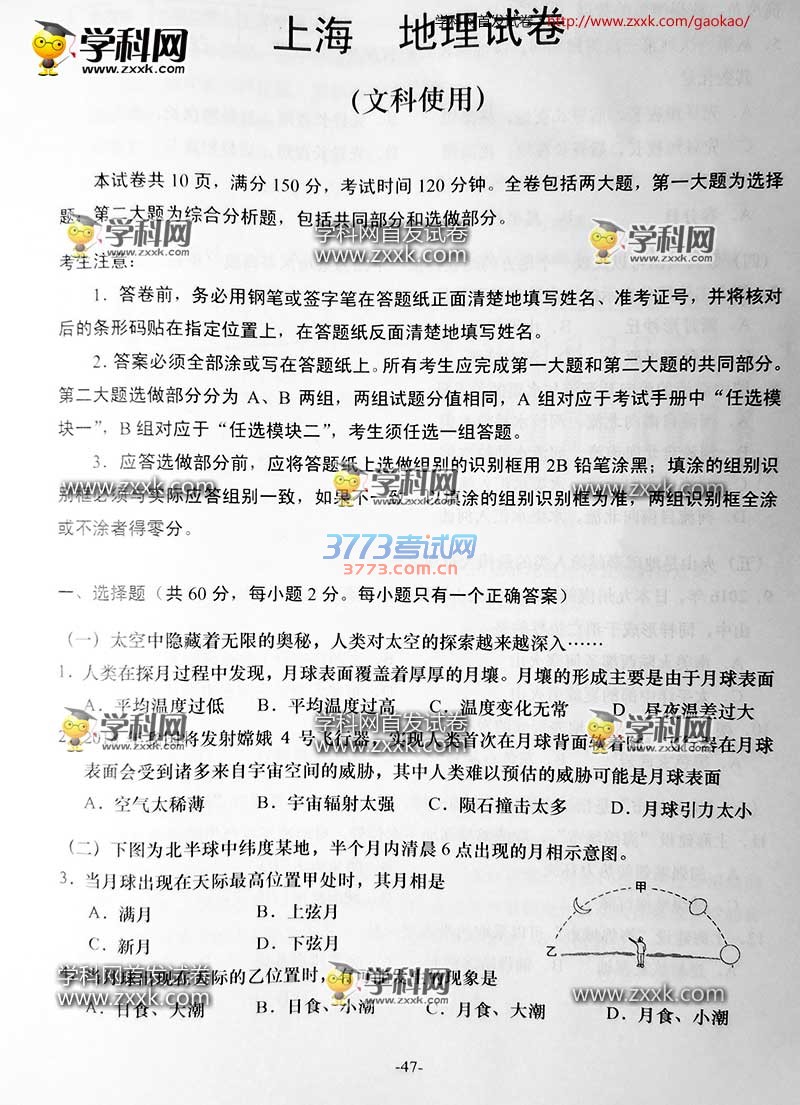 学科网首发试卷 http://www.zxxk.com/gaokao/
学科网
www.zxxk.com
上海 地理试卷
(文科使用)
本试卷共 10 页，满分 150 分，考试时间 120 分钟。全卷包括两大题，第一大题为选择
题；第二大题为综合分析题，包括共同部分和选做部分。
学科网
www.zxxk.com
学科网首发试卷
www.zxxk.com
学科网
www.zxxk.com
考生注意：
1．答卷前，务必用钢笔或签字笔在答题纸正面清楚地填写姓名、准考证号，并将核对
后的条形码贴在指定位置上，在答题纸反面清楚地填写姓名。
2．答案必须全部涂或写在答题纸上。所有考生应完成第一大题和第二大题的共同部分。
第二大题选做部分分为 A、B 两组，两组试题分值相同，A 组对应于考试手册中“任选模
块一”，B 组对应于“任选模块二”，考生须任选一组答题。
3．应答选做部分前，应将答题纸上选做组别的识别框用 2B 铅笔涂黑；填涂的组别识
别框必须与实际应答组别一致，如果不一致，填涂的组别识别框为准，两组识别框全涂
或不涂者得零分。
学科网首发试卷
www.zxxk.com
学科网
www.zxxk.com
学科网首发试卷
www.zxxk.com
3773考试网
3773.com.cn
一、选择题（共 60 分，每小题 2 分。每小题只有一个正确答案）
（一）太空中隐藏着无限的奥秘，人类对太空的探索越来越深入……
1．人类在探月过程中发现，月球表面覆盖着厚厚的月壤。月壤的形成主要是由于月球表面
A．平均温度过低 B．平均温度过高 C．温度变化无常 D．昼夜温差过大
学科网
www.zxxk.com
学科网首发试卷
www.zxxk.com
学科网
www.zxxk.com
2．将发射嫦娥 4 号飞行器，实现人类首次在月球背面着陆器在月球
表面会受到诸多来自宇宙空间的威胁，其中人类难以预估的威胁可能是月球表面
A．空气太稀薄 B．宇宙辐射太强 C．陨石撞击太多 D．月球引力太小
（二）下图为北半球中纬度某地，半个月内清晨 6 点出现的月相示意图。
3．当月球出现在天际最高位置甲处时，其月相是
A．满月 B．上弦月
C．新月 D．下弦月
甲
乙
当月球出现在天际的乙位置时，有可能的现象是
学科网首发试卷
www.zxxk.com
学科网
www.zxxk.com
学科网首发试卷
www.zxxk.com
A．日食、大潮 B．日食、小潮 C．月食、大潮 D．月食、小潮
-47-